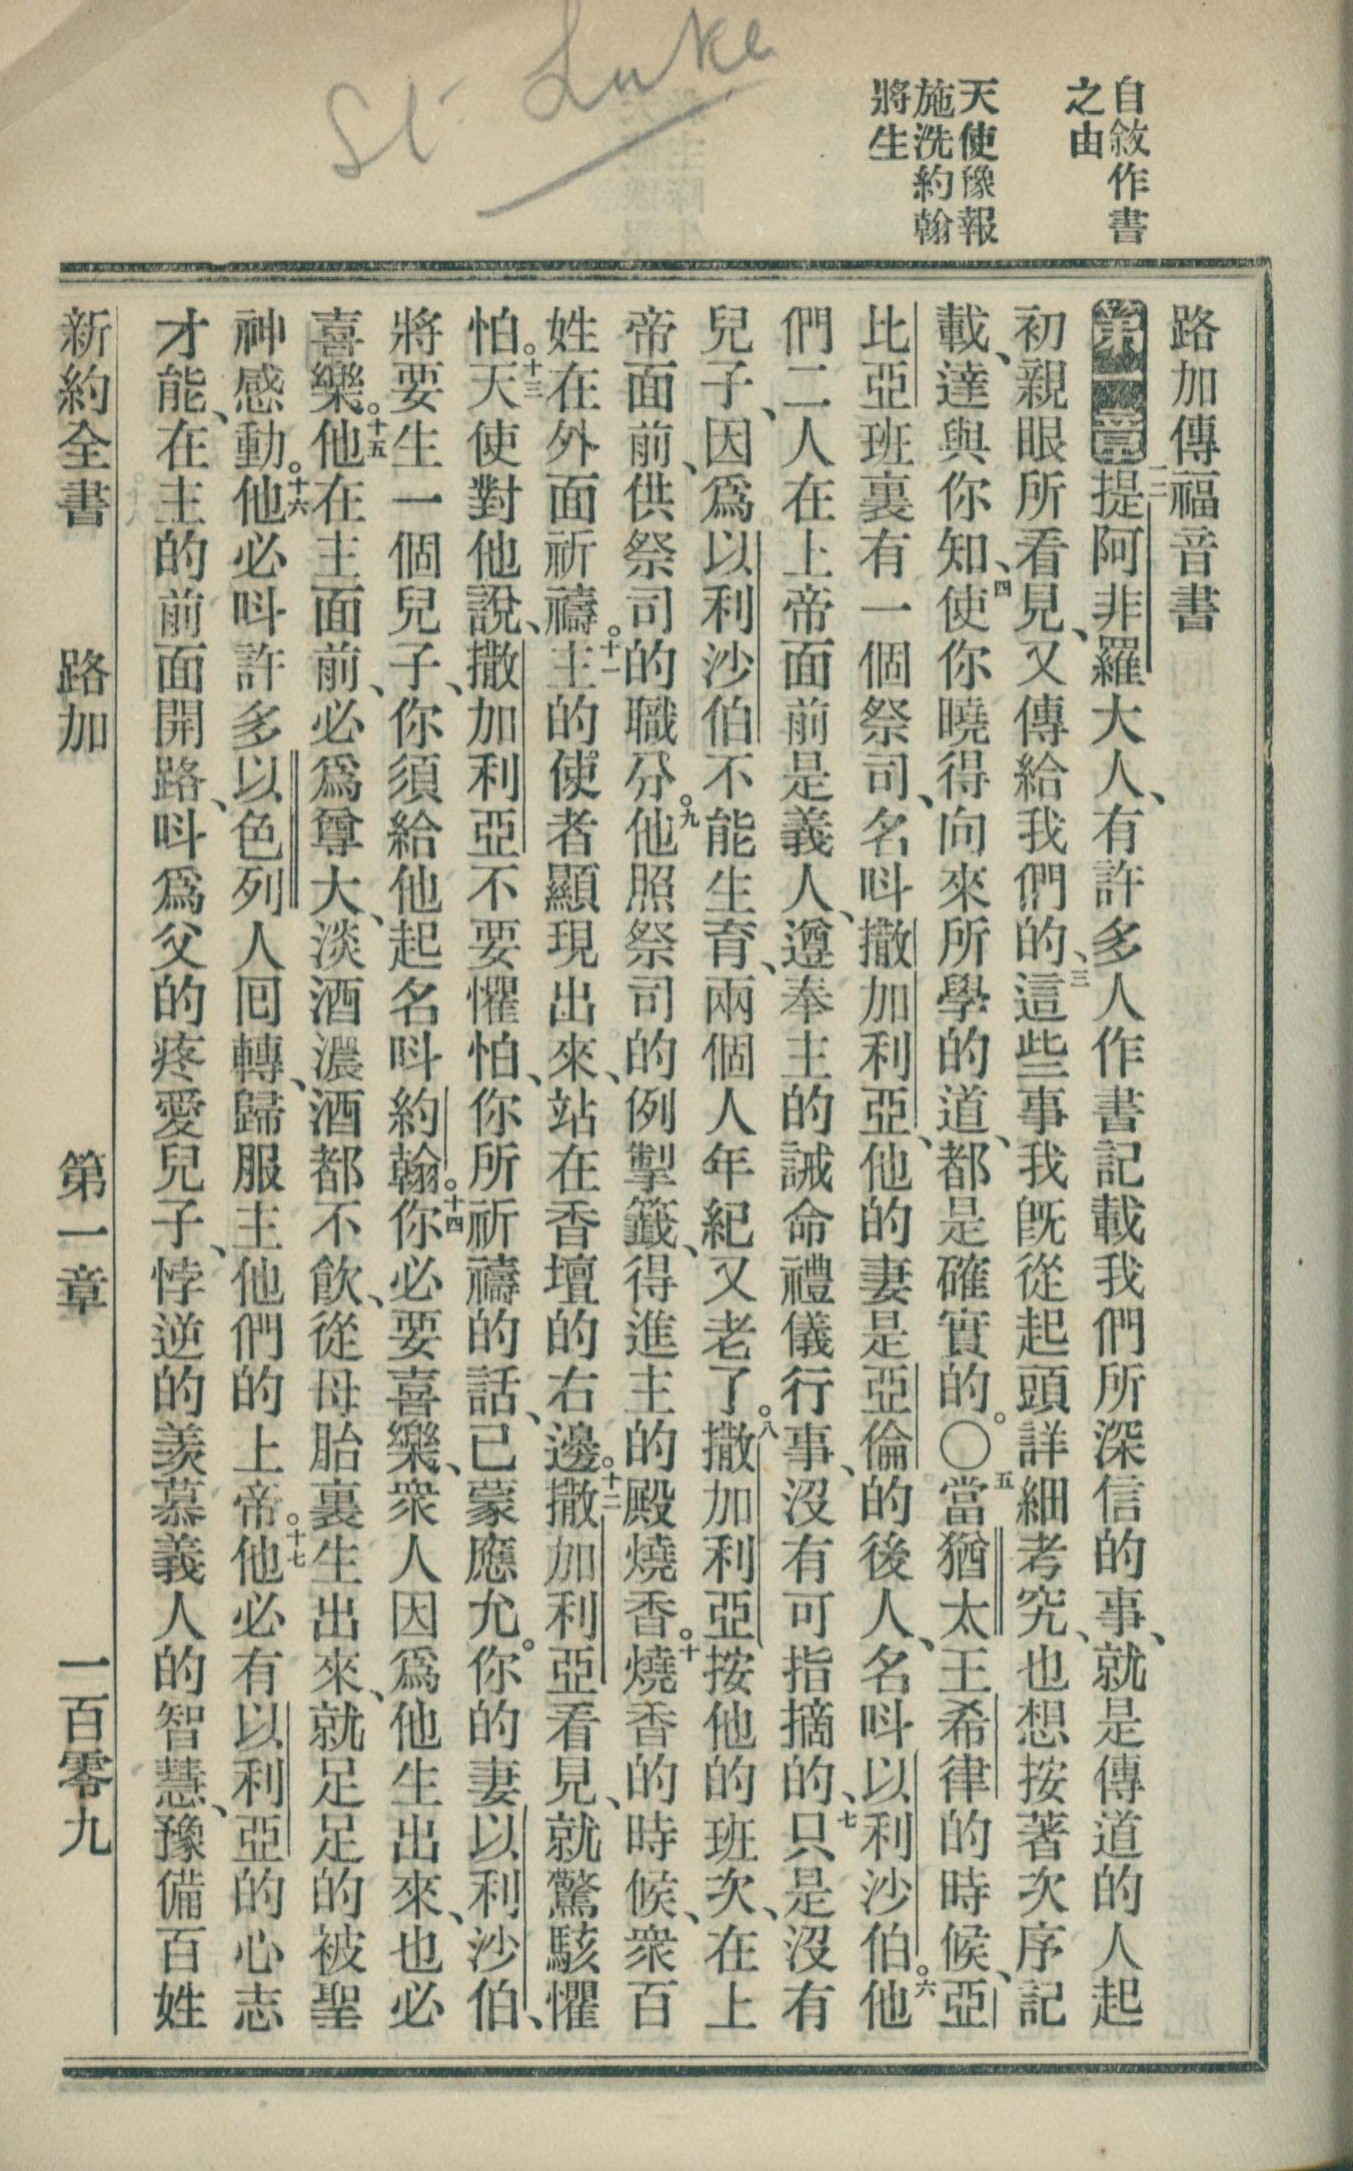 St. Luke
自敘作書
之由
天使豫報
施洗約翰
將生
路加傳福音書
第一章一二提阿非羅大人、有許多人作書記載我們所深信的事、就是傳道的人起
初親眼所看見、又傳給我們的、三這些事我既從起頭詳細考究、也想按著次序記
載、達與你知、四使你曉得向來所學的道、都是確實的。〇五當猶太王希律的時候、亞
比亞班裏有一個祭司、名呌撒加利亞、他的妻是亞倫的後人、名呌以利沙伯。六他
們二人在上帝面前是義人、遵奉主的誡命禮儀行事、沒有可指摘的、七只是沒有
兒子、因爲以利沙伯不能生育、兩個人年紀又老了。八撒加利亞按他的班次、在上
帝面前、供祭司的職分。九他照祭司的例掣籤、得進主的殿燒香。十燒香的時候、衆百
姓在外面祈禱。十一主的使者顯現出來、站在香壇的右邊。十二撒加利亞看見、就驚駭懼
怕。十三天使對他說、撒加利亞不要懼怕、你所祈禱的話、已蒙應允。你的妻以利沙伯、
將要生一個兒子、你須給他起名呌約翰。十四你必要喜樂、衆人因爲他生出來、也必
喜樂。十五他在主面前、必爲尊大、淡酒濃酒都不飲、從母胎裏生出來、就足足的被聖
神感動。十六他必呌許多以色列人囘轉、歸服主他們的上帝。十七他必有以利亞的心志
才能、在主的前面開路、呌爲父的疼愛兒子、悖逆的羨慕義人的智慧、豫備百姓
新約全書 路加 第一章 一百零九